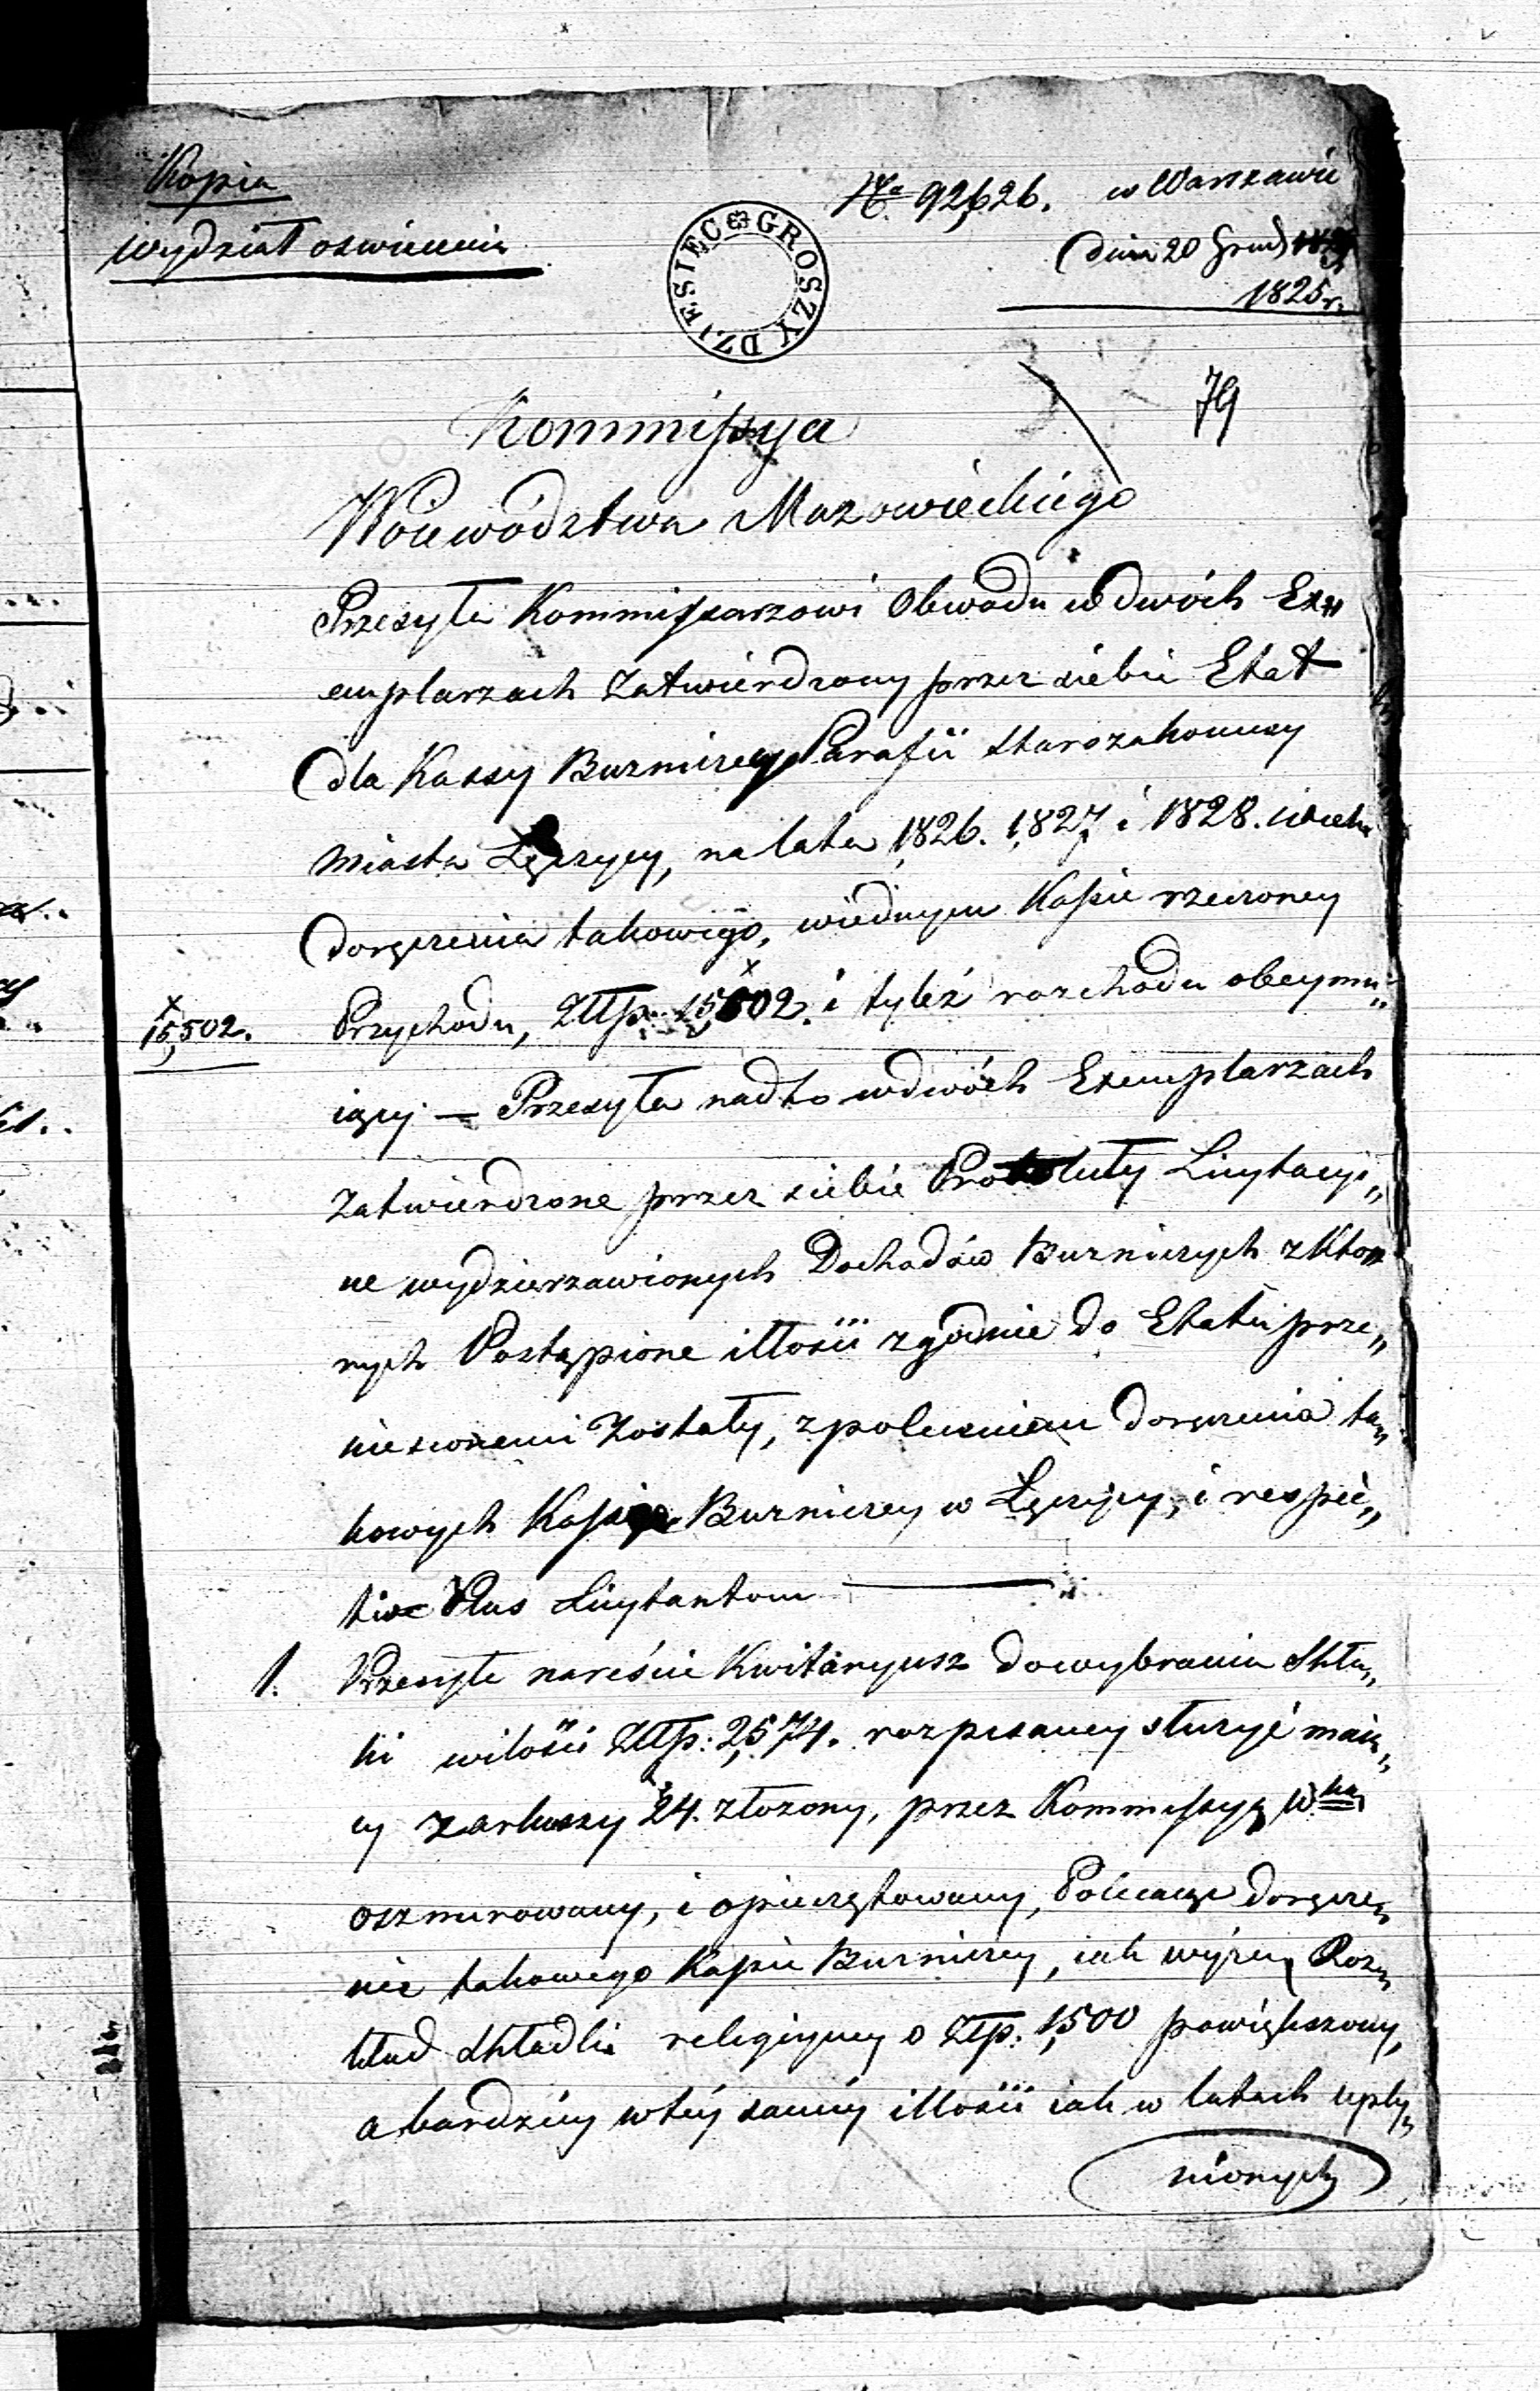 Kopia
wydział oswiecenia
No 92,626. w Warszawie
dnia 20 Grud
1825 r.
DZIESIĘC GROSZY
79
Kommissya
Woiewództwa Mazowieckiego
Przesyła Kommissarzowi Obwodu w dwóch Ex„
emplarzach zatwierdzony przez siebie Etat
dla Kassy Bożniczey Parafii Starozakonney
miasta Łęczycy, na lata 1826. 1,827 i 1828. w celu
doręczenia takowego, wiednym Kassie rzeczoney
15,502.
Przychodu, Złłp. 15,502. i tyleż rozchodu obeymu„
iący. — Przesyła nadto w dwóch Exemplarzach
zatwierdzone przez siebie Protokuły Licytacyi„
ne wydzierzawionych Dochodów Bożniczych z Któ„
rych Postąpione illości zgodnie do Etatu prze„
niesionemi Zostały, z poleceniem doręczenia ta„
kowych Kassie Bożniczey w Łęczycy, i respec„
tive Plus Licytantom
1. Przesyła nareście Kwitaryusz do wybrania Skład„
ki w ilości Złłp: 2,574. rozpisaney służyć maią„
cy z arkuszy 24. złożony, przez Kommissyą Wką
osznurowany, i opieczętowany, Polecaiąc doręcze„
nie takowego Kassie Bożniczey, iak wyżey Roz„
kład składki religiyney o Złp. 1,500 powiększony,
a bardziey w tey samey illości iak w latach upły„
nionych